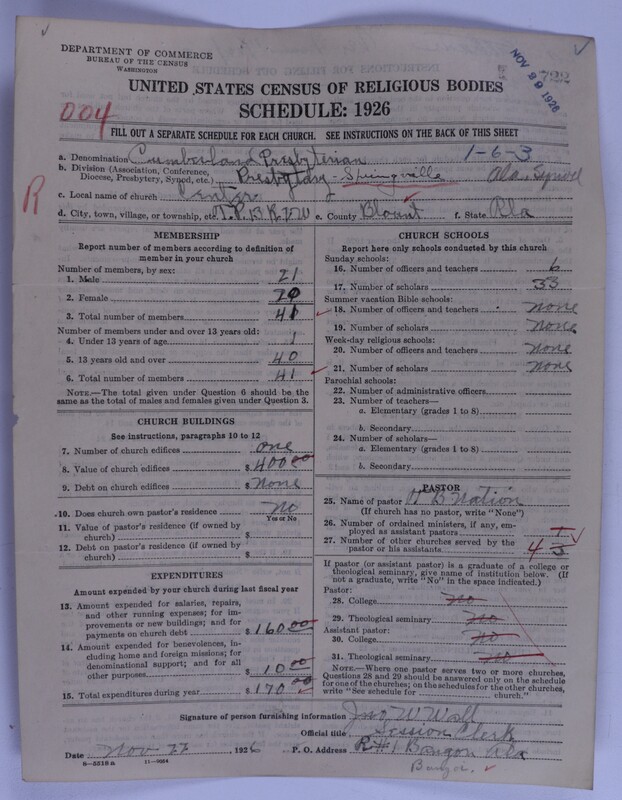 DEPARTMENT OF COMMERCE
BUREAU OF THE CENSUS
WASHINGTON
NOV 29 1926
722
UNITED STATES CENSUS OF RELIGIOUS BODIES
SCHEDULE: 1926
004
FILL OUT A SEPARATE SCHEDULE FOR EACH CHURCH. SEE INSTRUCTIONS ON THE BACK OF THIS SHEET
a. Denomination Cumberland Presbyterian 1-6-3
b. Division (Association, Conference, Diocese, Presbytery, Synod, etc.) Presbytery - Springville Ala. Synod
R
c. Local name of church Center
d. City, town, village, or township, etc. e. County Blount f. State Ala
MEMBERSHIP
Report number of members according to definition of member in your church
Number of members, by sex:
1. Male 21
2. Female 20
3. Total number of members 41
Number of members under and over 13 years old:
4. Under 13 years of age 1
5. 13 years old and over 40
6. Total number of members 41
NOTE.—The total given under Question 6 should be the same as the total of males and females given under Question 3.
CHURCH BUILDINGS
See instructions, paragraphs 10 to 12
7. Number of church edifices one
8. Value of church edifices $ 400 00
9. Debt on church edifices $ None
10. Does church own pastor's residence No
Yes or No
11. Value of pastor's residence (if owned by church) $
12. Debt on pastor's residence (if owned by church) $
EXPENDITURES
Amount expended by your church during last fiscal year
13. Amount expended for salaries, repairs, and other running expenses; for improvements or new buildings; and for payments on church debt $ 160 00
14. Amount expended for benevolences, including home and foreign missions; for denominational support; and for all other purposes $ 10 00
15. Total expenditures during year $ 170 00
CHURCH SCHOOLS
Report here only schools conducted by this church
Sunday schools:
16. Number of officers and teachers 6
17. Number of scholars 33
Summer vacation Bible schools:
18. Number of officers and teachers none
19. Number of scholars none
Week-day religious schools:
20. Number of officers and teachers none
21. Number of scholars none
Parochial schools:
22. Number of administrative officers
23. Number of teachers—
a. Elementary (grades 1 to 8)
b. Secondary
24. Number of scholars—
a. Elementary (grades 1 to 8)
b. Secondary
PASTOR
25. Name of pastor B Nation
(If church has no pastor, write "None")
26. Number of ordained ministers, if any, employed as assistant pastors
27. Number of other churches served by the pastor or his assistants 4 3
If pastor (or assistant pastor) is a graduate of a college or theological seminary, give name of institution below. (If not a graduate, write "No" in the space indicated.)
Pastor:
28. College no
29. Theological seminary no
Assistant pastor:
30. College no
31. Theological seminary no
NOTE.—Where one pastor serves two or more churches, Questions 28 and 29 should be answered only on the schedule for one of the churches; on the schedules for the other churches, write "See schedule for church."
Signature of person furnishing information Jno W Wall
Official title Session Clerk
Date Nov 22, 1926 P. O. Address R#1 Bangor Ala
Bangor.
8-5518a 11-9084